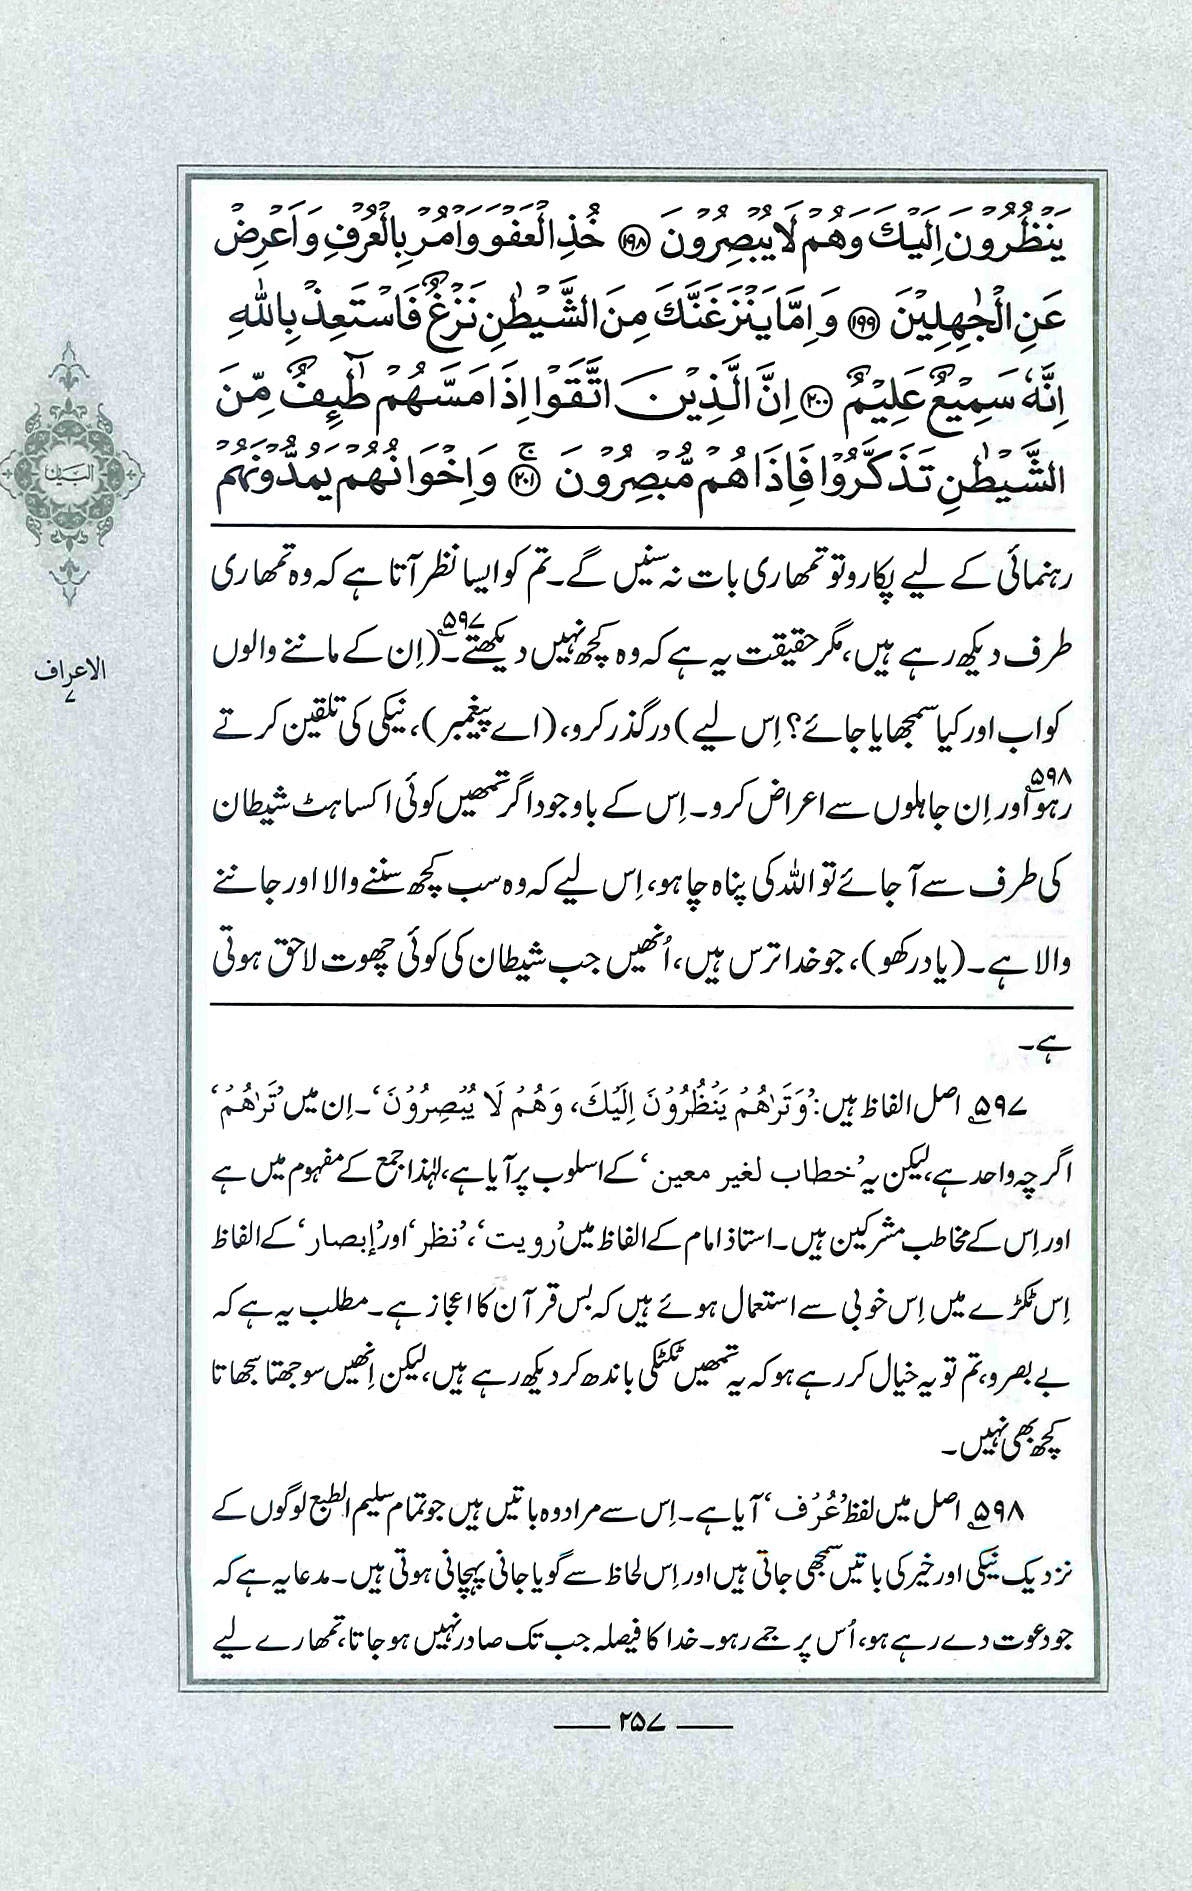 يَنْظُرُوْنَ اِلَيْكَ وَهُمْ لَا يُبْصِرُوْنَ ﴿۱۹۸﴾ خُذِ الْعَفْوَ وَاْمُرْ بِالْعُرْفِ وَاَعْرِضْ
عَنِ الْجٰهِلِيْنَ ﴿۱۹۹﴾ وَاِمَّا يَنْزَغَنَّكَ مِنَ الشَّيْطٰنِ نَزْغٌ فَاسْتَعِذْ بِاللّٰهِ
اِنَّهٗ سَمِيْعٌ عَلِيْمٌ ﴿۲۰۰﴾ اِنَّ الَّذِيْنَ اتَّقَوْا اِذَا مَسَّهُمْ طٰٓئِفٌ مِّنَ
الشَّيْطٰنِ تَذَكَّرُوْا فَاِذَا هُمْ مُّبْصِرُوْنَ ﴿۲۰۱﴾ۚ وَاِخْوَانُهُمْ يَمُدُّوْنَهُمْ
البیان
الاعراف
۷
رہنمائی کے لیے پکارو تو تمھاری بات نہ سنیں گے۔ تم کو ایسا نظر آتا ہے کہ وہ تمھاری
طرف دیکھ رہے ہیں، مگر حقیقت یہ ہے کہ وہ کچھ نہیں دیکھتے۔۵۹۷ (اِن کے ماننے والوں
کو اب اور کیا سمجھایا جائے؟ اِس لیے) درگذر کرو، (اے پیغمبر)، نیکی کی تلقین کرتے
رہو۵۹۸ اور اِن جاہلوں سے اعراض کرو۔ اِس کے باوجود اگر تمھیں کوئی اکساہٹ شیطان
کی طرف سے آ جائے تو اللہ کی پناہ چاہو، اِس لیے کہ وہ سب کچھ سننے والا اور جاننے
والا ہے۔ (یاد رکھو)، جو خدا ترس ہیں، اُنھیں جب شیطان کی کوئی چھوت لاحق ہوتی
ہے۔
۵۹۷؎ اصل الفاظ ہیں: ’وَتَرٰهُمْ يَنْظُرُوْنَ اِلَيْكَ، وَهُمْ لَا يُبْصِرُوْنَ‘۔ اِن میں ’تَرٰهُمْ‘
اگرچہ واحد ہے، لیکن یہ ’خطاب لغیر معین‘ کے اسلوب پر آیا ہے، لہٰذا جمع کے مفہوم میں ہے
اور اِس کے مخاطب مشرکین ہیں۔ استاذ امام کے الفاظ میں ’رویت‘، ’نظر‘ اور ’إبصار‘ کے الفاظ
اِس ٹکڑے میں اِس خوبی سے استعمال ہوئے ہیں کہ بس قرآن کا اعجاز ہے۔ مطلب یہ ہے کہ
بے بصرو، تم تو یہ خیال کر رہے ہو کہ یہ تمھیں ٹکٹکی باندھ کر دیکھ رہے ہیں، لیکن اِنھیں سوجھتا سجھاتا
کچھ بھی نہیں۔
۵۹۸؎ اصل میں لفظ ’عُرْف‘ آیا ہے۔ اِس سے مراد وہ باتیں ہیں جو تمام سلیم الطبع لوگوں کے
نزدیک نیکی اور خیر کی باتیں سمجھی جاتی ہیں اور اِس لحاظ سے گویا جانی پہچانی ہوتی ہیں۔ مدعا یہ ہے کہ
جو دعوت دے رہے ہو، اُس پر جمے رہو۔ خدا کا فیصلہ جب تک صادر نہیں ہو جاتا، تمھارے لیے
۲۵۷